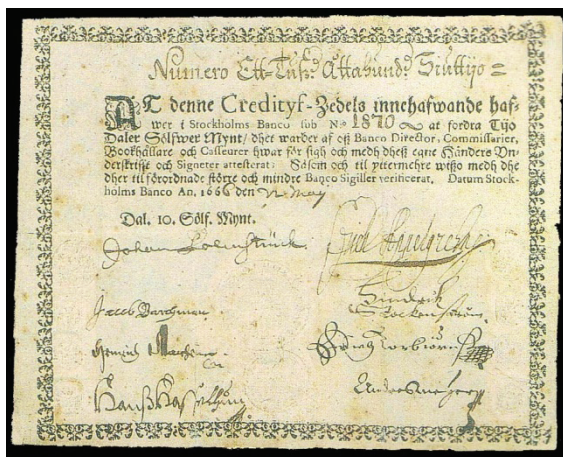 Numero Ett-Tusende Ottahunde Siuttijo =
AT denne Credityf-Zedels innehafwande haf-
wer i Stockholms Banco sub N:o 1870 at fordra Tijo
Daler Sölfwer Mynt / dhet warder af oß Banco Director, Commissarier,
Bookhållare och Casseurer hwar för sigh och medh dheß egne Händers Vn-
derskrifft och Signeter attesterat. Såsom och til yttermehre wißo medh dhe
dher til förordnade större och mindre Banco Sigiller verificerat, Datum Stock-
holms Banco An. 1666 den May
Dal. 10. Sölf. Mynt.
Johan
Jacob
Hinrich
Hanß
Anders Meijer